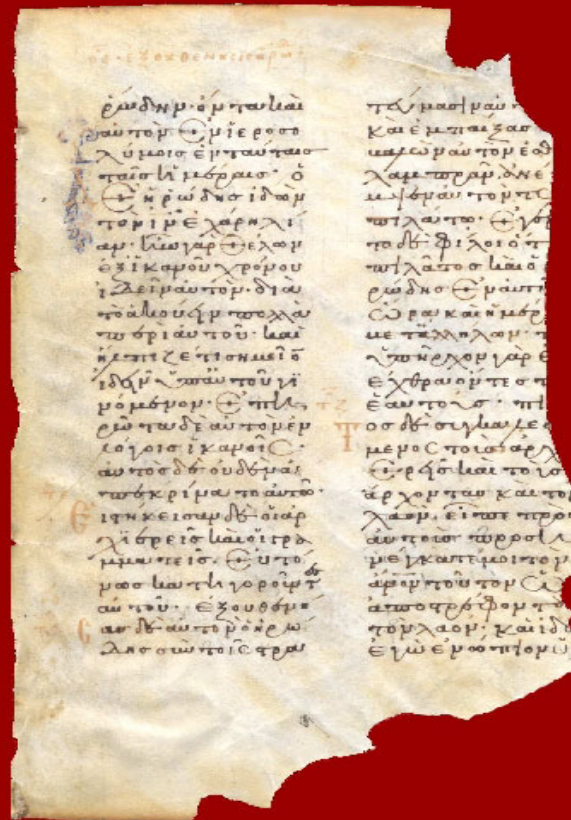 ρώδην· ὄντα καὶ
αὐτὸν ἐν ἱεροσο
λύμοις ἐν ταύταις
ταῖς ἡμέραις· ὁ
δὲ ἡρώδης ἰδὼν
τὸν ιν ἐχάρη λί
αν· ἦν γὰρ θέλων
ἐξ ἱκανοῦ χρόνου
ἰδεῖν αὐτὸν· διὰ
τὸ ἀκούειν πολλὰ
περὶ αὐτοῦ· καὶ
ἤλπιζέ τι σημεῖο
ἰδεῖν ὑπ' αὐτοῦ γι
νόμενον· ἐπη
ρώτα δὲ αὐτὸν ἐν
λόγοις ἱκανοῖς·
αὐτὸς δὲ οὐδὲν ἀ
πεκρίνατο αὐτῷ·
ιστήκεισαν δὲ οἱ ἀρ
χιερεῖς καὶ οἱ γρα
μματεῖς· εὐτό
νως κατηγοροῦντες
αὐτοῦ· ἐξουθενή
σας δὲ αὐτὸν ὁ ἡρώ
δης σὺν τοῖς στρα
τεύμασιν αὐ
καὶ ἐμπαίξας
λαμπρὰν· ἀνέ
μψεν αὐτὸν τῷ
πιλάτω· ἐγέ
το δὲ φίλοι ὅ τ
πιλάτος καὶ ὁ
ρώδης ἐν αὐτῇ
ὥρα καὶ ἡμέρ
μετ ἀλλήλων·
ὑπῆρχον γὰρ ἐ
ἔχθρα ὄντες π
ἑαυτούς· πι
τος δὲ συγκαλεσ
μενος τοὺς ἀρχ
ιερεῖς καὶ τοὺς
ἄρχοντας καὶ τὸ
λαὸν, εἶπε πρὸ
αὐτούς προση
νέγκατέ μοι τὸν
ἀποστρέφοντ
τὸν λαόν· καὶ ἰδ
ἐγὼ ἐνώπιον ὑ